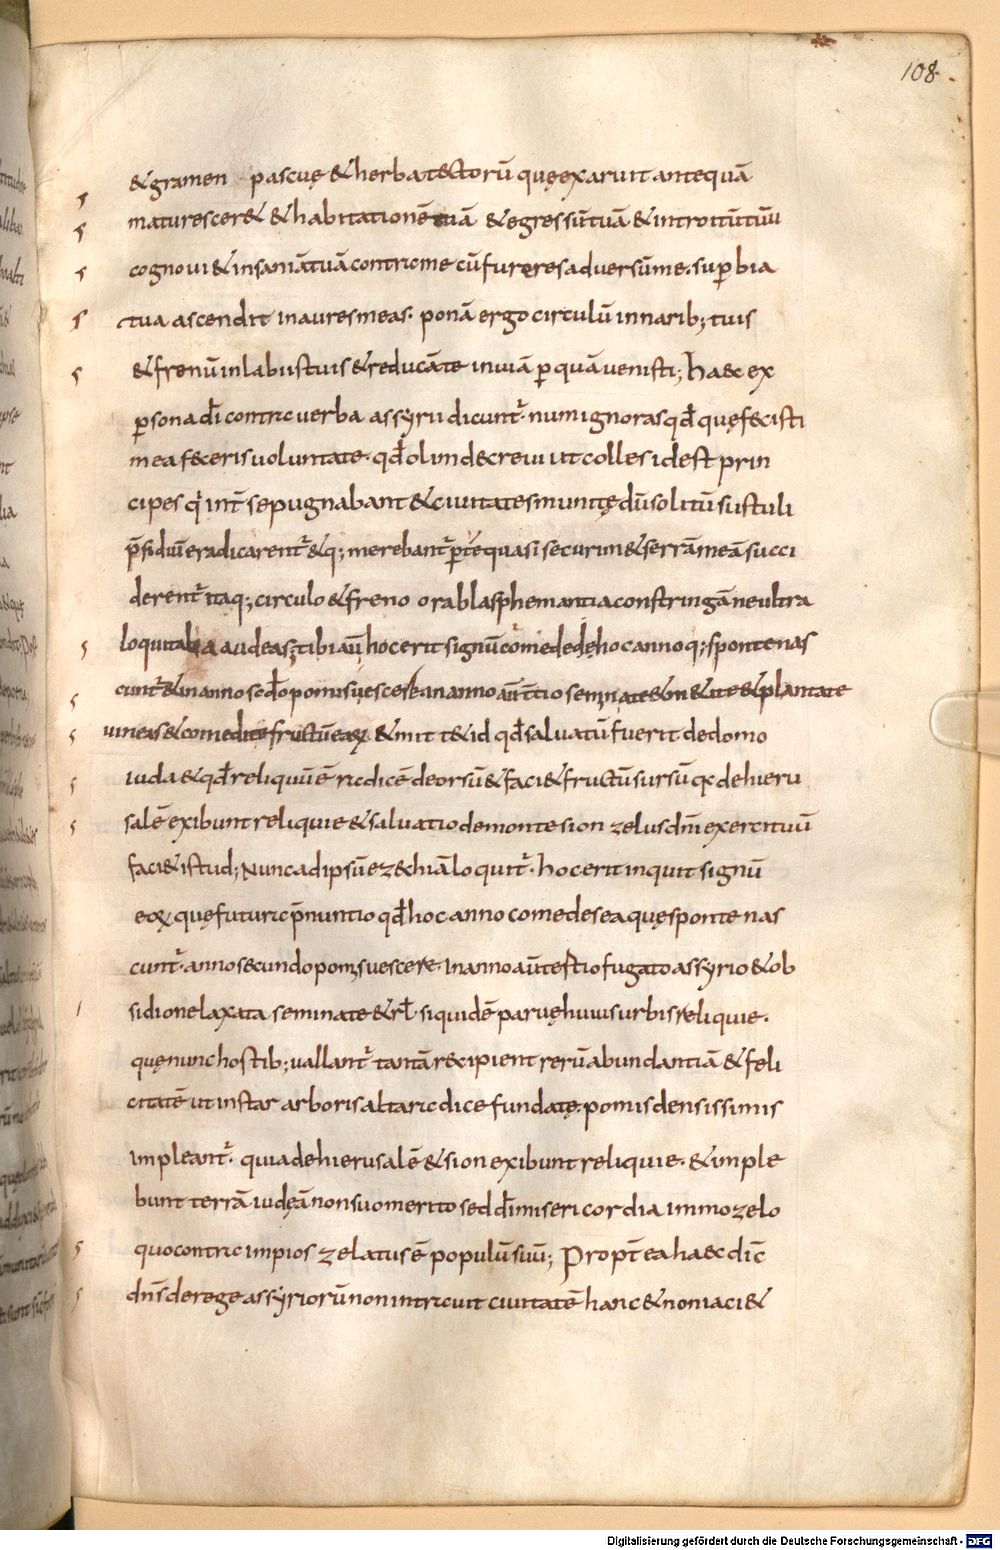 108
&gramen pascuę & herba tectorū quęexaruit antequā
maturescer& & habitationē tuā & egressū tuā & introitū tuū
cognoui & insaniā tuā contra me cū fureres aduersū me. suꝑbia
tua ascendit in aures meas. ponā ergo circulū in narib; tuis
& frenū in labiis tuis & reducā te in uiā ꝑ quā uenisti; haec ex
ꝑsona dī contra uerba assyrii dicunt᷑. num ignoras qđ quę fecisti
mea feceris uoluntate. qđ olim decreui ut colles id est prin
cipes qi int̄ se pugnabant & ciuitates munitę dū solitū sustuli
p̄sidiū eradicarent᷑ & q; merebant᷑ ꝑ te quasi securim & serrā meā succi
derent᷑ itaq; circulo & freno ora blasphemantia constringā ne ultra
loqui talia audeas; tibi aū hoc erit signū comede hoc anno q; sponte nas
cunt᷑ & in anno sedo pomis uescere in anno aū t̄tio seminate & m&ite & plantate
uineas & comedite fructū eaꝝ & mitt& id qđ saluatū fuerit de domo
iuda & qđ reliquū ē radicē deorsū & faci& fructū sursū qa de hieru
salē exibunt reliquie & saluatio de monte sion zelus dn̄i exercituū
faci& istud; Nunc ad ipsū ezechiā loquit᷑. hoc erit inquit signū
eoꝝ quę futura p̄nuntio qđ hoc anno comedes ea quę sponte nas
cunt᷑. anno secundo pomis uescere. in anno aū tertio fugato assyrio & ob
sidione laxata seminate & rł. siquidē paruę huius urbis reliquie.
quę nunc hostib; uallant᷑ tantā recipient rerū abundantiā & feli
citatē ut instar arboris alta radice fundatę. pomis densissimis
impleant᷑. quia de hierusalē & sion exibunt reliquie. & imple
bunt terrā iudęā non suo merito sed dī misericordia immo zelo
quo contra impios zelatus ē populū suū; Propt̄ ea haec dic̄
dn̄s de rege assyriorū non intrauit ciuitatē hanc & non iaci&
Digitalisierung gefördert durch die Deutsche Forschungsgemeinschaft - DFG